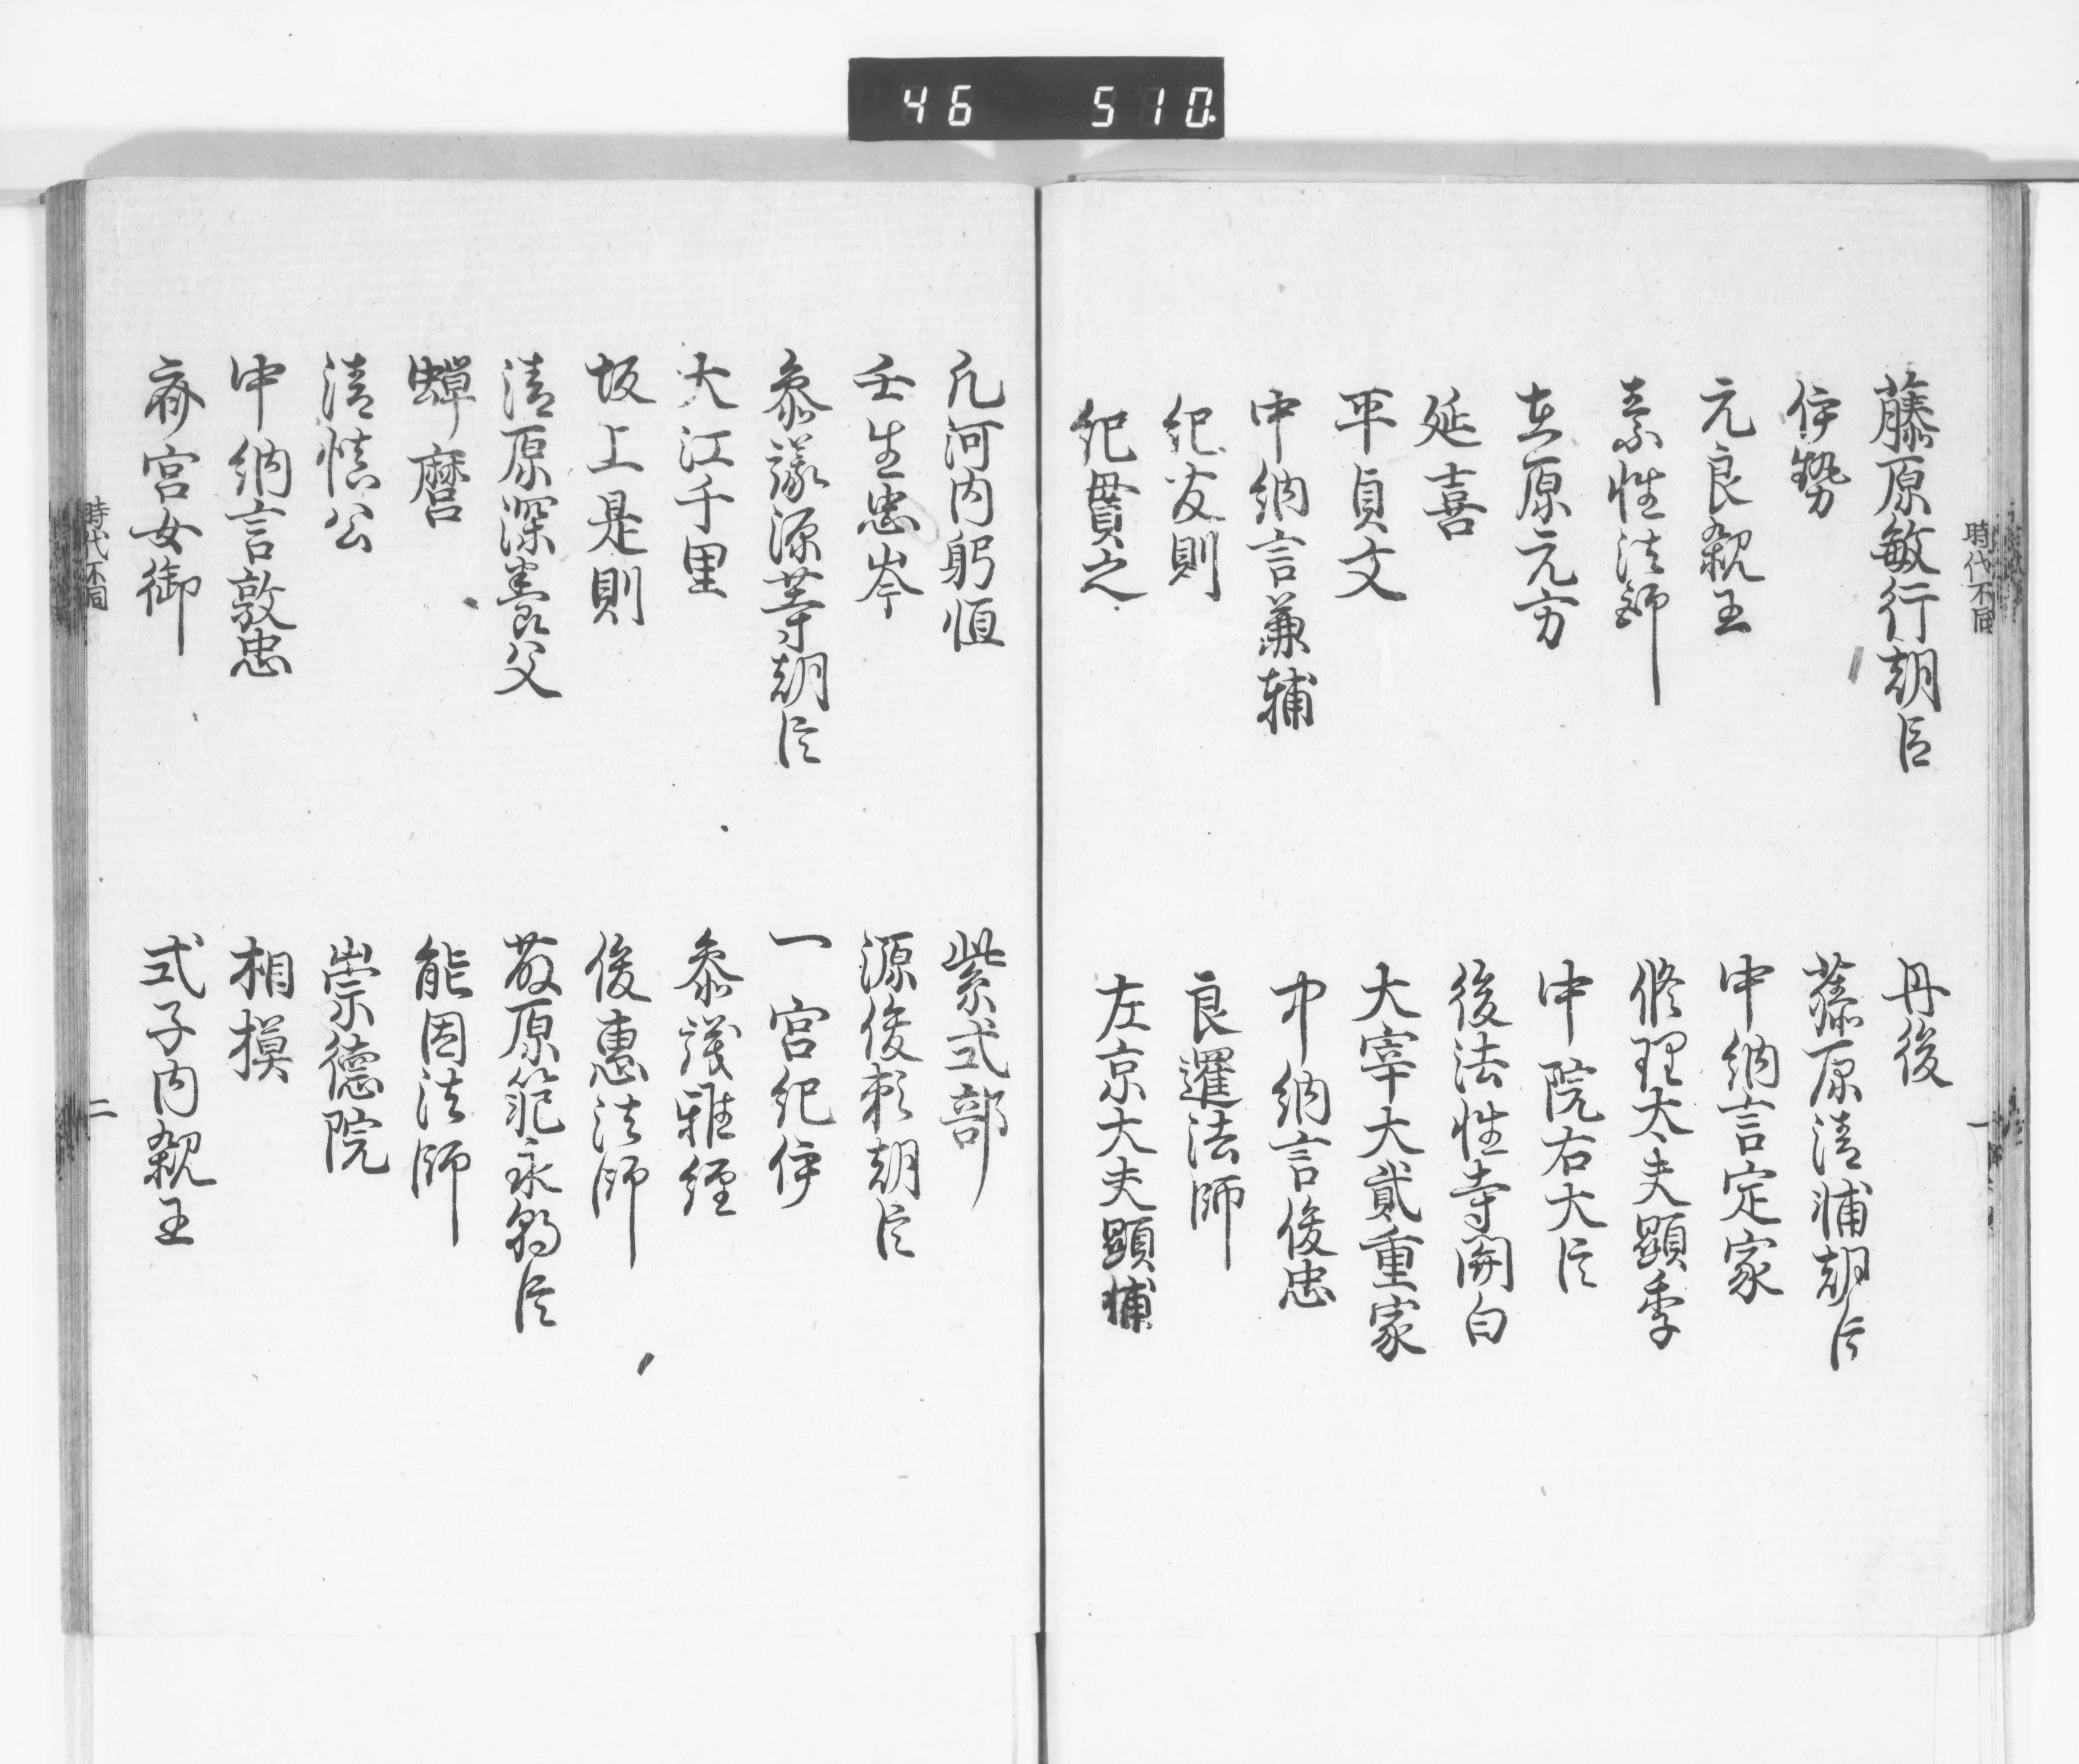 46 510.
時代不同
一
藤原敏行朝臣
丹後
伊勢
藤原清浦朝臣
元良親王
中納言定家
素性法師
修理大夫顕季
在原元方
中院右大臣
延喜
後法性寺関白
平貞文
大宰大貳重家
中納言兼輔
中納言俊忠
紀友則
良暹法師
紀貫之
左京大夫顕輔
凡河内躬恒
紫式部
壬生忠岑
源俊頼朝臣
参議源等朝臣
一宮紀伊
大江千里
参議雅経
坂上是則
俊恵法師
清原深養父
藤原範永朝臣
蝉麿
能因法師
清慎公
崇徳院
中納言敦忠
相摸
斎宮女御
式子内親王
時代不同
二